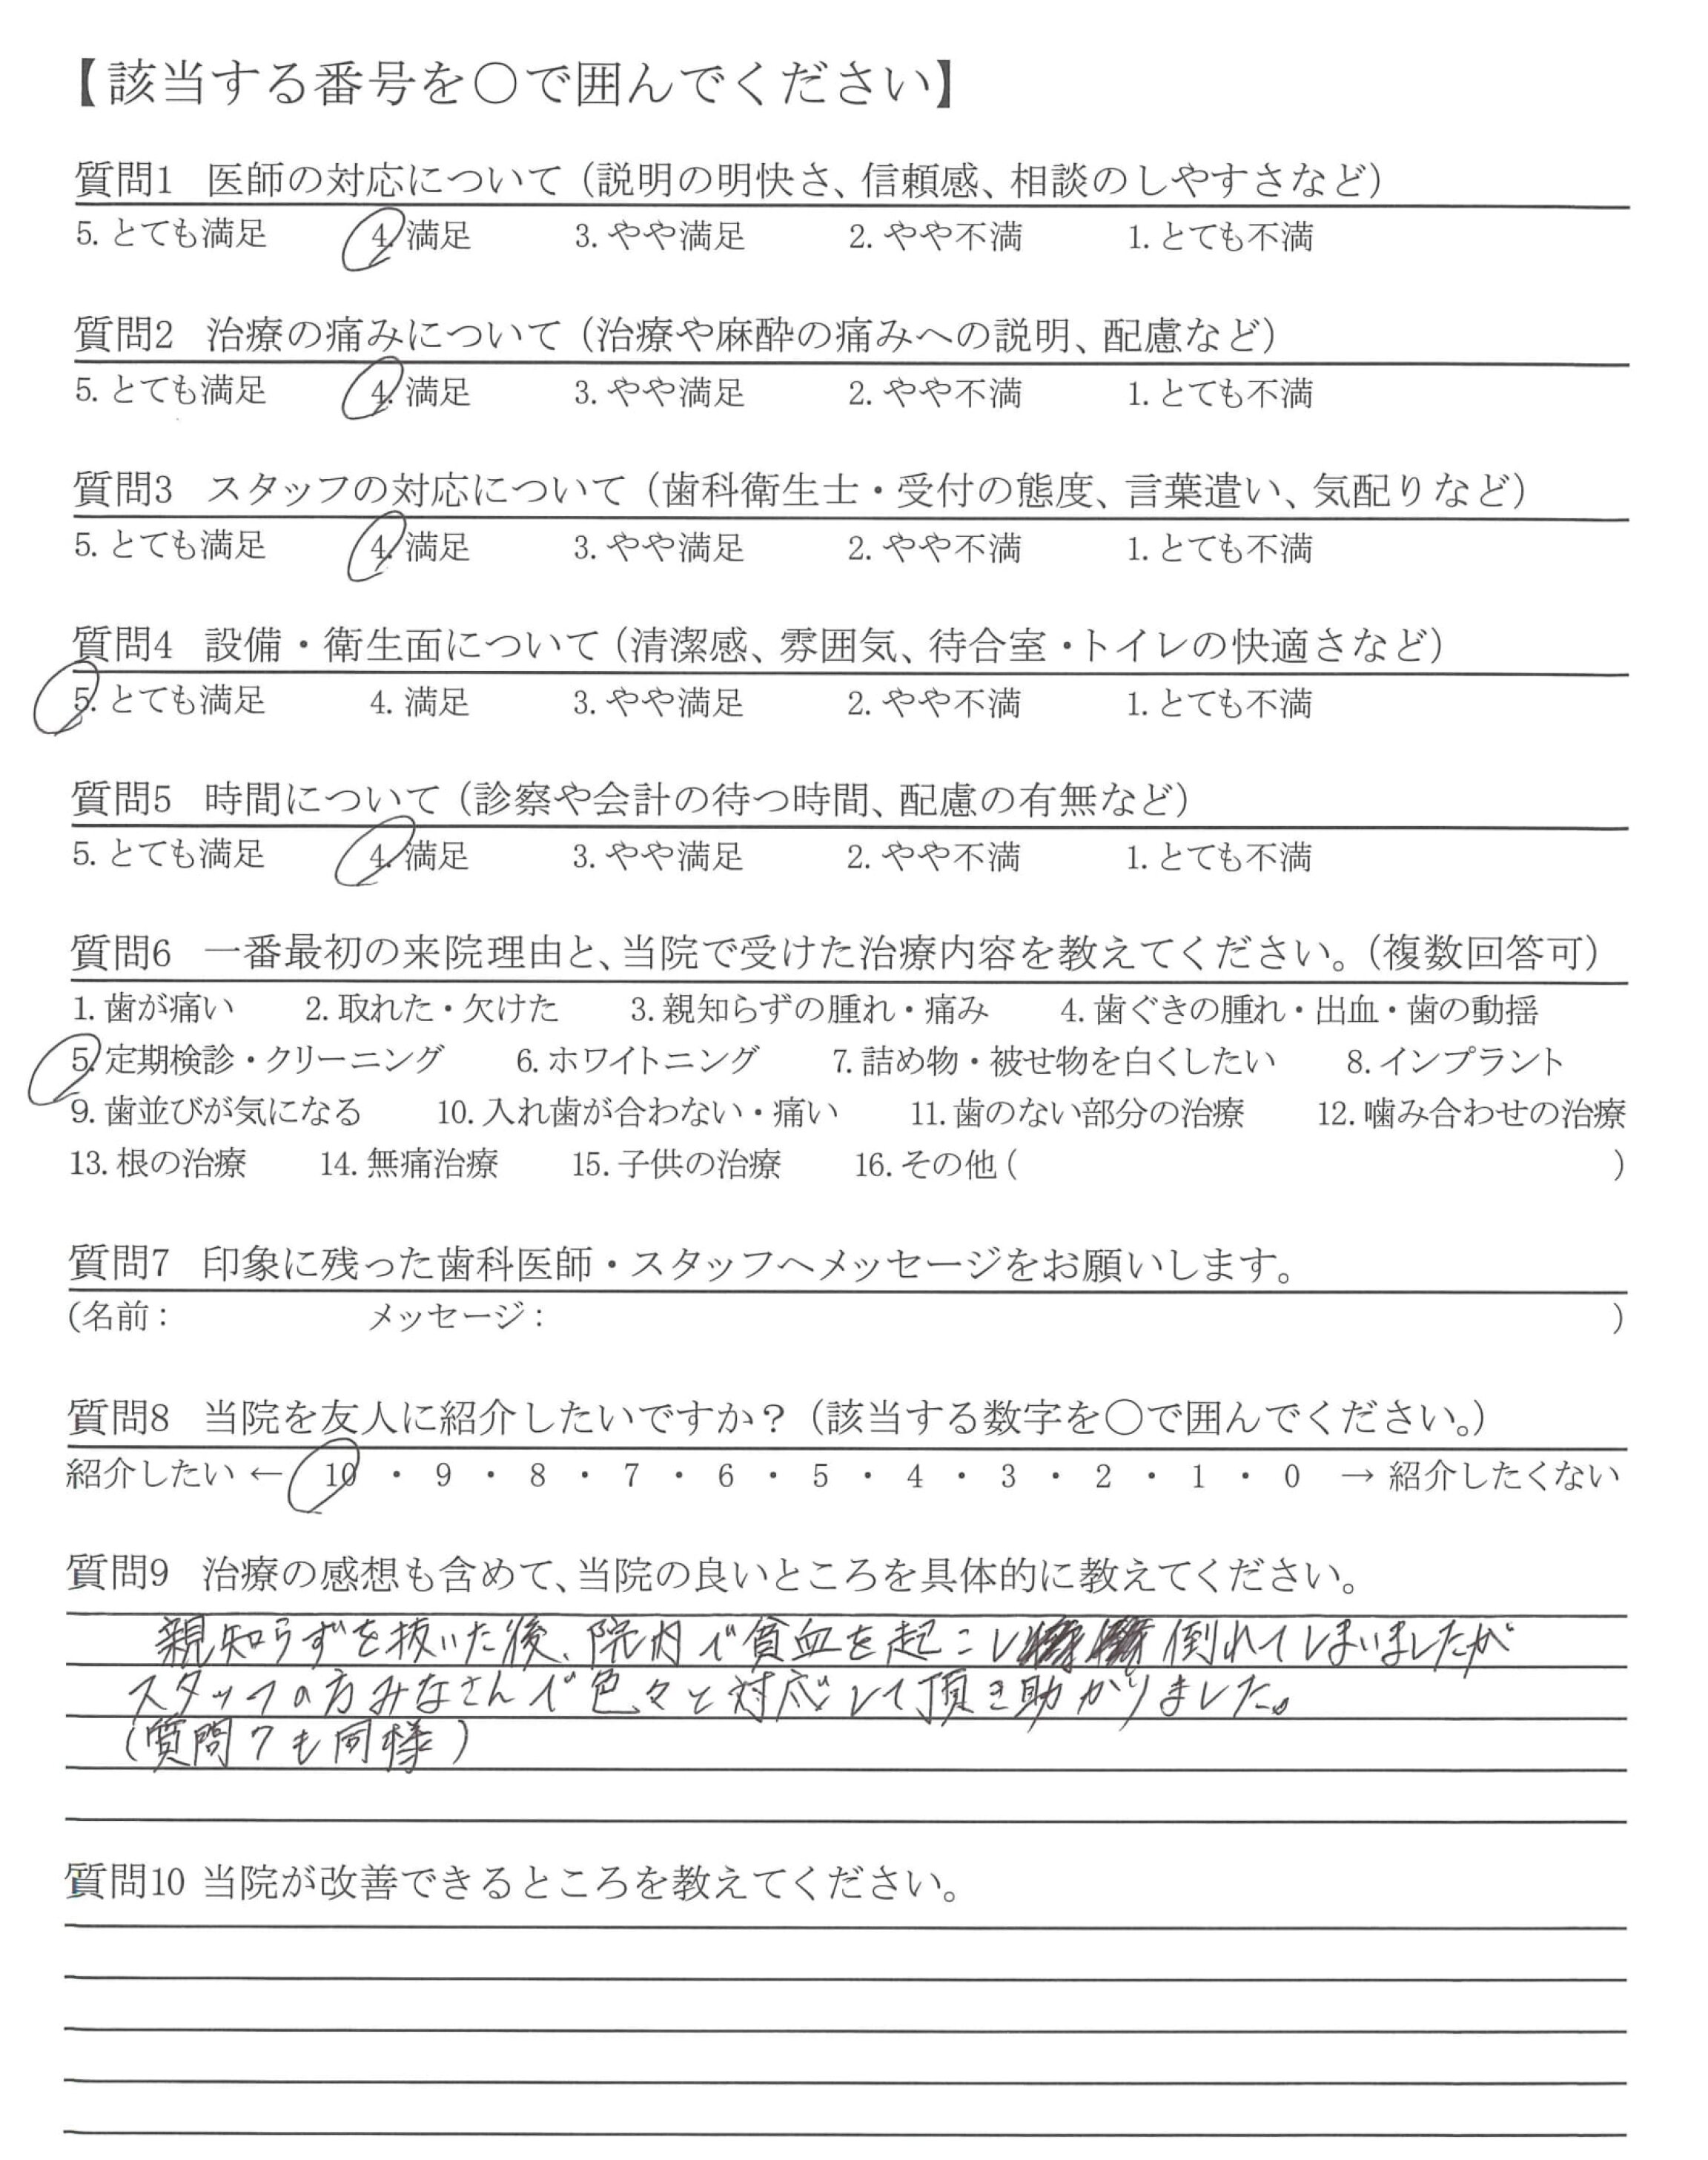 【該当する番号を○で囲んでください】
質問1 医師の対応について（説明の明快さ、信頼感、相談のしやすさなど）
5. とても満足 4. 満足 3. やや満足 2. やや不満 1. とても不満
質問2 治療の痛みについて（治療や麻酔の痛みへの説明、配慮など）
5. とても満足 4. 満足 3. やや満足 2. やや不満 1. とても不満
質問3 スタッフの対応について（歯科衛生士・受付の態度、言葉遣い、気配りなど）
5. とても満足 4. 満足 3. やや満足 2. やや不満 1. とても不満
質問4 設備・衛生面について（清潔感、雰囲気、待合室・トイレの快適さなど）
5. とても満足 4. 満足 3. やや満足 2. やや不満 1. とても不満
質問5 時間について（診察や会計の待つ時間、配慮の有無など）
5. とても満足 4. 満足 3. やや満足 2. やや不満 1. とても不満
質問6 一番最初の来院理由と、当院で受けた治療内容を教えてください。（複数回答可）
1. 歯が痛い 2. 取れた・欠けた 3. 親知らずの腫れ・痛み 4. 歯ぐきの腫れ・出血・歯の動揺
5. 定期検診・クリーニング 6. ホワイトニング 7. 詰め物・被せ物を白くしたい 8. インプラント
9. 歯並びが気になる 10. 入れ歯が合わない・痛い 11. 歯のない部分の治療 12. 噛み合わせの治療
13. 根の治療 14. 無痛治療 15. 子供の治療 16. その他 ( )
質問7 印象に残った歯科医師・スタッフへメッセージをお願いします。
(名前： メッセージ： )
質問8 当院を友人に紹介したいですか？（該当する数字を○で囲んでください。）
紹介したい ← 10 ・ 9 ・ 8 ・ 7 ・ 6 ・ 5 ・ 4 ・ 3 ・ 2 ・ 1 ・ 0 → 紹介したくない
質問9 治療の感想も含めて、当院の良いところを具体的に教えてください。
親知らずを抜いた後、院内で貧血を起こし倒れてしまいましたが
スタッフの方みなさんで色々と対応して頂き助かりました。
(質問7も同様)
質問10 当院が改善できるところを教えてください。